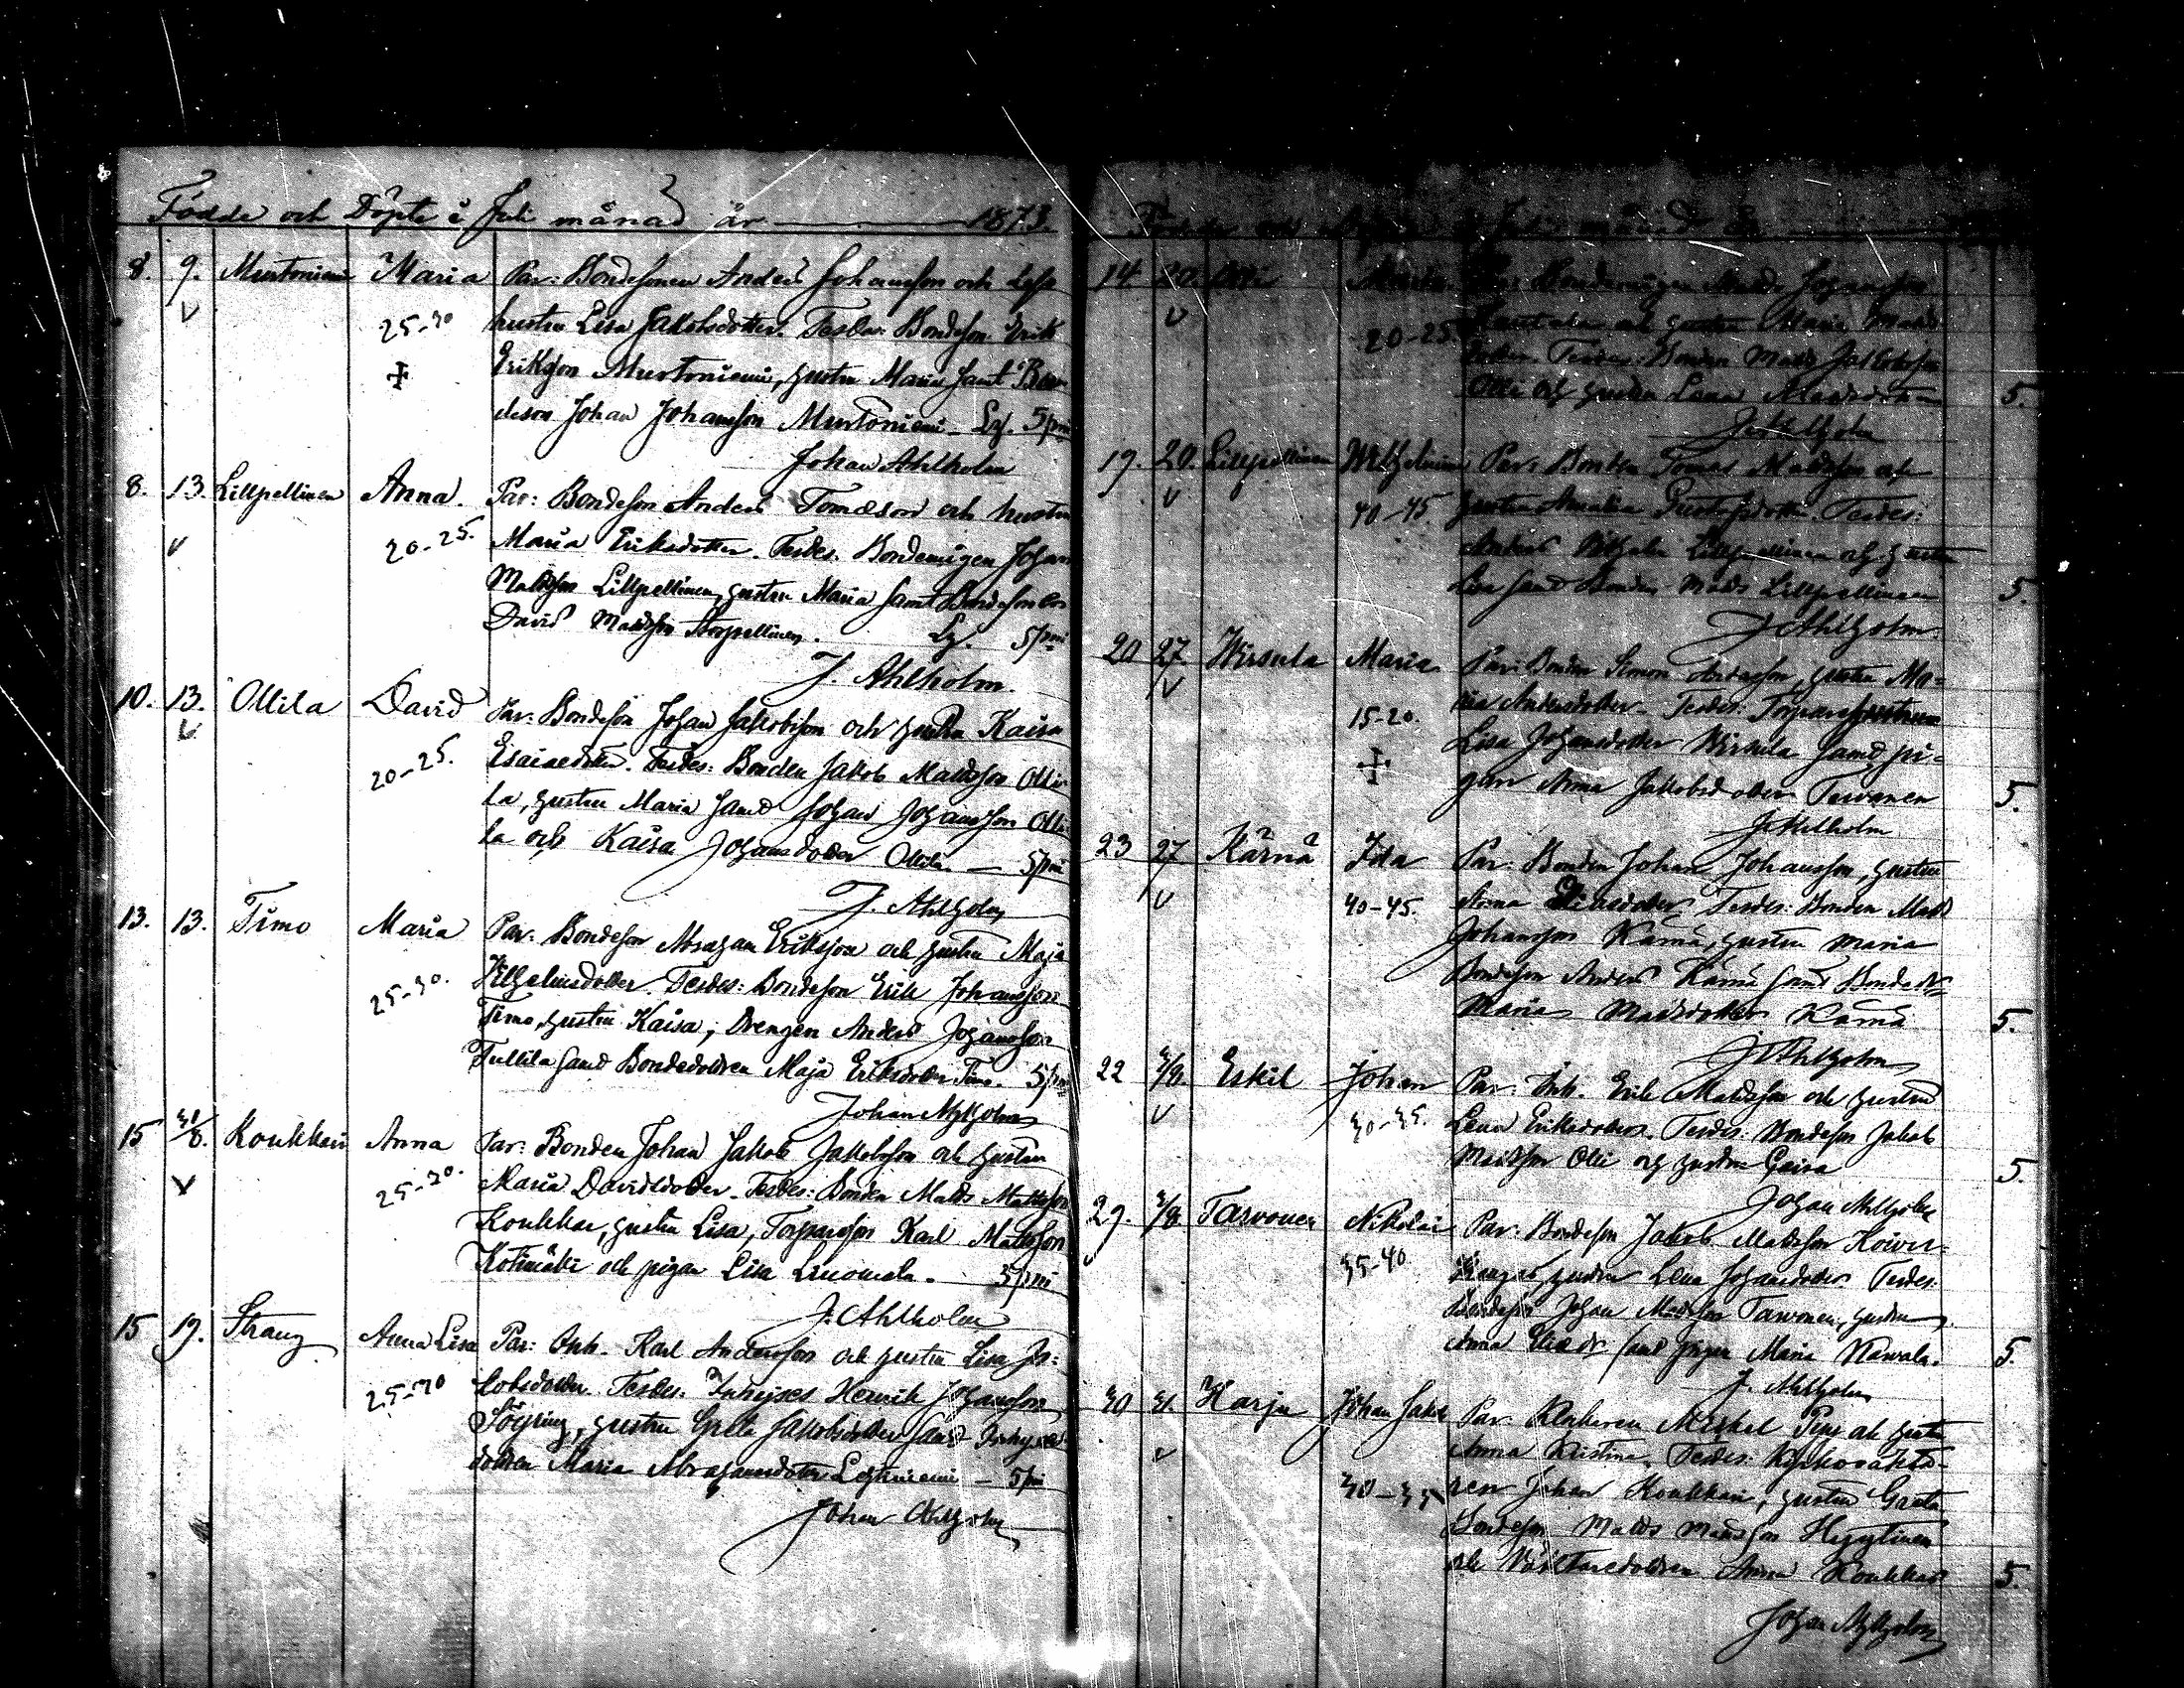 Födde och Döpte i Juli månad år 1873.
8. 9. Murtoniemi Maria Par: Bondesonen Anders Johansson och
hustru Lisa Jakobsdotter. Bondeson Erik
25-30
Eriksson Murtoniemi, hustru Maria samt Bon-
deson Johan Johansson Murtoniemi 5
Johan Ahlholm
8. 13. Lillpellinen Anna. Par: Bondeson Anders Tomasson och hustru
20-25. Maria Eriksdotter. Testes: Bondemågen Johan
Mattsson Lillpellinen, hustru Maria samt Bondeson
David Mattsson Storpellinen. 5
J. Ahlholm.
10. 13. Ollila David Par: Bondeson Johan Jakobsson och hustru Kaisa
20-25. Esaiædotter. Testes: Bonden Jakob Mattsson Olli-
la, hustru Maria samt Johan Johansson Olli-
la och Kaisa Johansdotter Ollila. 5
J. Ahlholm
13. 13. Timo Maria Par: Bondeson Abraham Eriksson och hustru Maja
25-30. Wilhelmsdotter. Testes: Bondeson Erik Johansson
Timo, hustru Kaisa, Drengen Anders Johansson
Tullila samt Bondedottren Maja Eriksdotter Timo. 5
Johan Ahlholm
15 31/8. Koukkari Anna Par: Bonden Johan Jakob Jakobsson och hustru
25-30. Maria Davidsdotter. Testes: Bonden Matts Mattsson
Koukkari, hustru Lisa, Torpareson Karl Mattsson
Kotimäki och pigan Lisa 5
J. Ahlholm
15 19. Strang Anna Lisa Par: Inh. Karl Andersson och hustru Lisa Ja-
25-30 kobsdotter. Testes: Inhyses Henrik Johansson
hustru Greta Jakobsdotter samt Inhyses
dottren Maria Abrahamsdotter Lehtiniemi 5
Johan Ahlholm
Födde och Döpte i Juli månad år
14. 20. Olli Maria. Par: Bondemågen Matts Johansson
20-25. och hustru Maria Matts-
dotter. Testes: Bonden Matts Jakobsson
Olli och hustru Lena 5.
J. Ahlholm
19. 20. Lillpellinen Wilhelmina Par: Bonden Tomas Mattsson och
40-45. hustru Amalia Gustafsdotter. Testes:
Anders Wilhelm Lillpellinen och hustru
Lisa samt Bonden Matts Lillpellinen 5.
J. Ahlholm.
20 27 Wirsula Maria Par: Bonden Simon Andersson, hustru Ma-
15-20. ria Andersdotter. Testes: Torparehustrun
Lisa Johansdotter Wirsula samt pi-
gan Anna Jakobsdotter Tarvonen 5.
J. Ahlholm
23 27 Kärnä Ida Par: Bonden Johan Johansson, hustru
40-45. Anna Testes: Bonden Matts
Johansson Kärnä, hustru Maria
Bondeson Anders Kärnä samt Bondedr
Maria Mattsdotter Kärnä 5.
J. Ahlholm
22 3/8. Eskil Johan Par: Inh. Erik Mattsson och hustru
30-35. Lena Eriksdotter. Testes: Bondeson Jakob
Mattsson Olli och hustru Caisa 5.
Johan Ahlholm
29. 3/8 Tarvonen Nikolai Par: Bondeson Jakob Mattsson
35-40 hustru Lena Johansdotter Testes:
Bondeson Johan Mattsson Tarvonen, hustru
Anna samt pigan Maria Kawala. 5.
J. Ahlholm
30 31. Harju Johan Jakob Par: Klockaren Mickel och hustru
Anna Kristina. Testes: Kyrkovakta-
30-35 ren Johan Koukkari, hustru Greta
Bondeson Matts Mattsson Hyytinen
och Anna Koukkari 5.
Johan Ahlholm